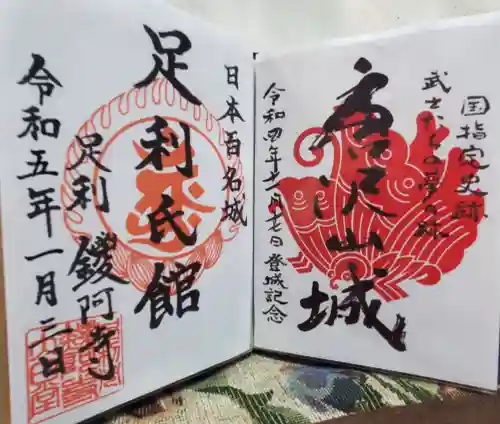 国指定史跡
武士たちの夢の跡
唐沢山城
令和四年十一月十七日登城記念
日本百名城
足利氏館
足利 鑁阿寺
令和五年一月三日